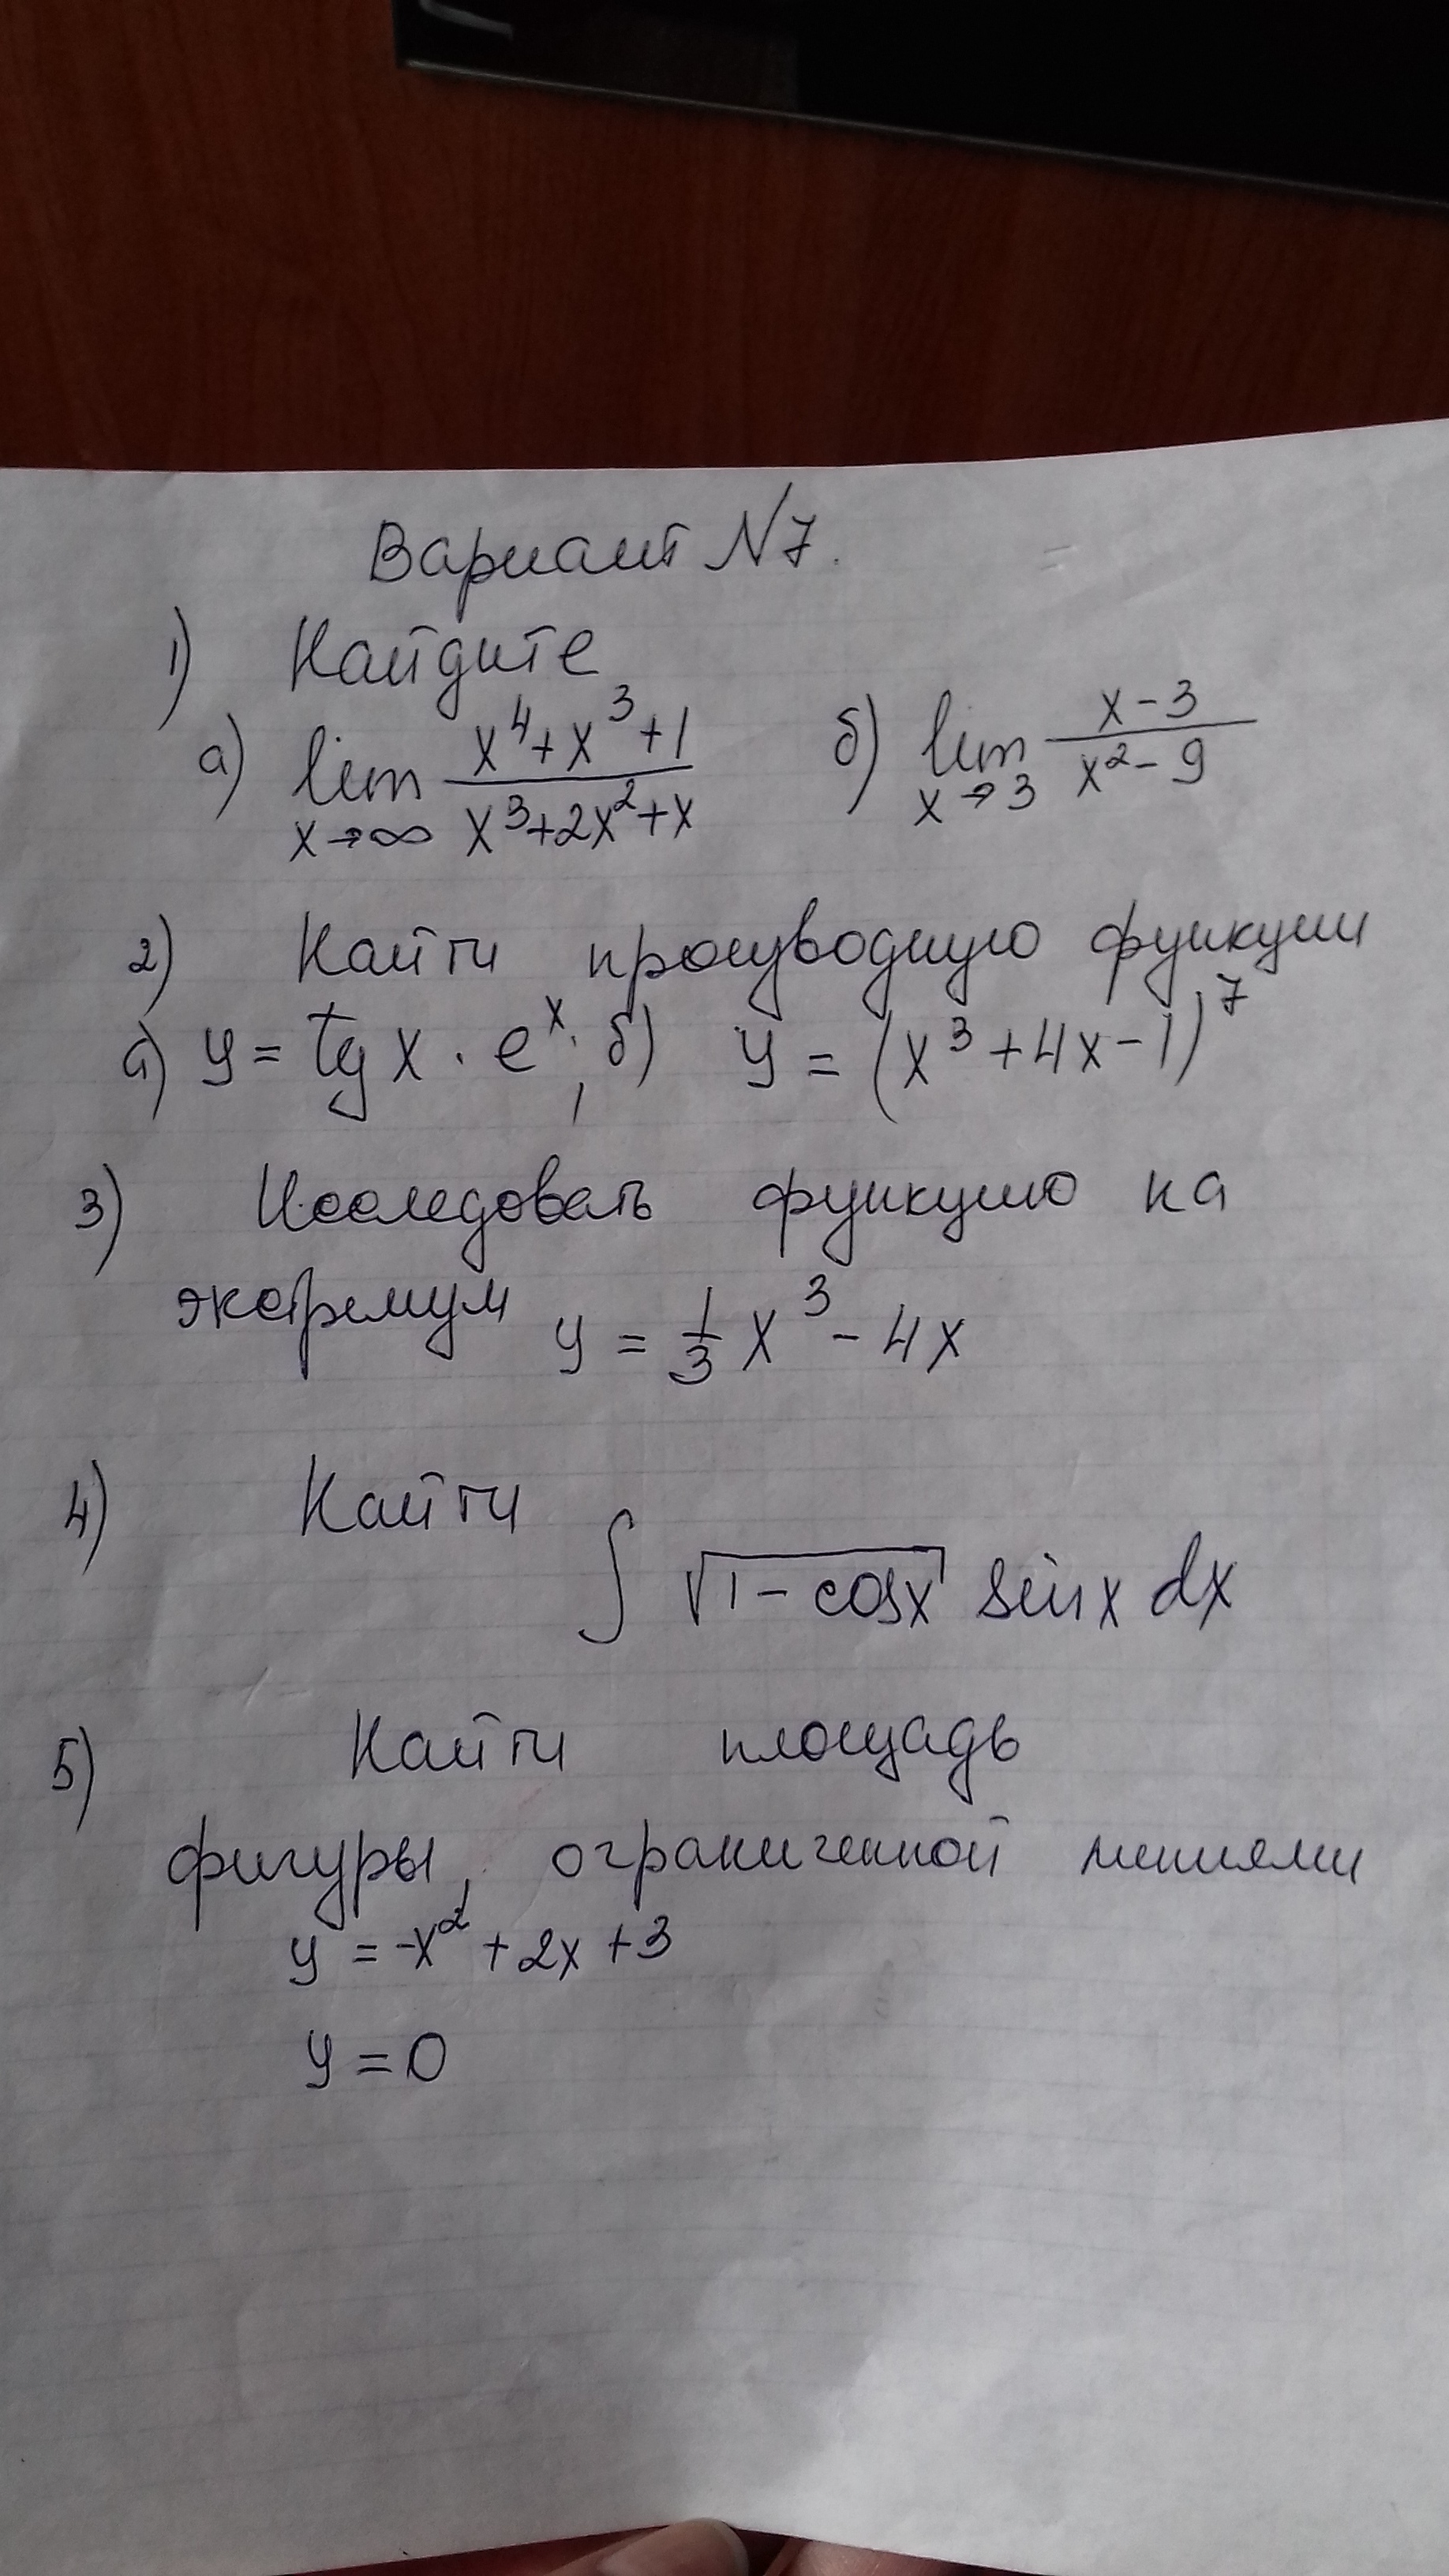 Вариант N7.
1) Найдите
а) lim x→∞ (x⁴+x³+1)/(x³+2x²+x) б) lim x→3 (x-3)/(x²-9)
2) Найти производную функции
а) y = tg x · eˣ; б) y = (x³+4x-1)⁷
3) Исследовать функцию на
экстремум y = 1/3 x³ - 4x
4) Найти
∫ √(1-cosx) sinx dx
5) Найти площадь
фигуры, ограниченной линиями
y = -x² + 2x + 3
y = 0